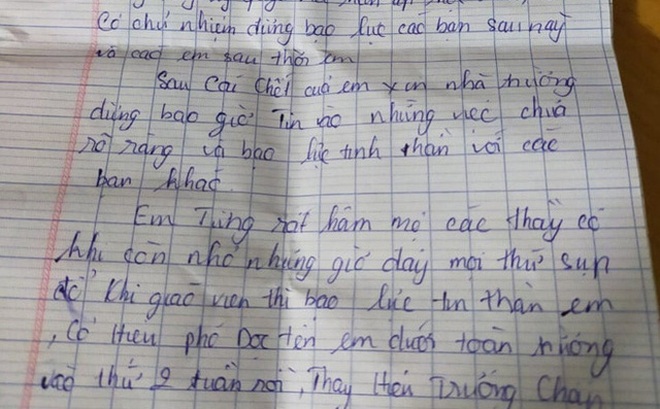 Cô chủ nhiệm đừng bạo lực các bạn sau này
và các em sau thời em
Sau cái chết của em xin nhà trường
đừng bao giờ Tin vào những việc chưa
rõ ràng và bạo lực tinh thần với các
bạn khác.
Em Từng rất hâm mộ các thầy cô
khi còn nhỏ nhưng giờ đây mọi thứ sụp
đổ khi giáo viên thì bạo lực tin thần em
, Cô Hiệu phó Đọc tên em dưới toàn trường
vào thứ 2 tuần rồi, Thầy Hiệu Trưởng